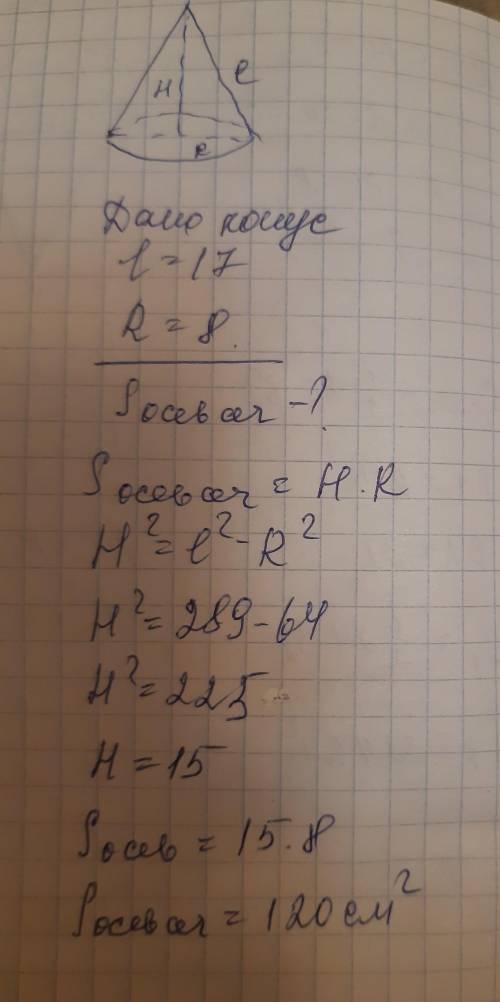 H
l
R
Дано конус
l = 17
R = 8.
Sосев сеч - ?
Sосев сеч = H . R
H² = l² - R²
H² = 289 - 64
H² = 225
H = 15
Sосев = 15 . 8
Sосев сеч = 120 см²